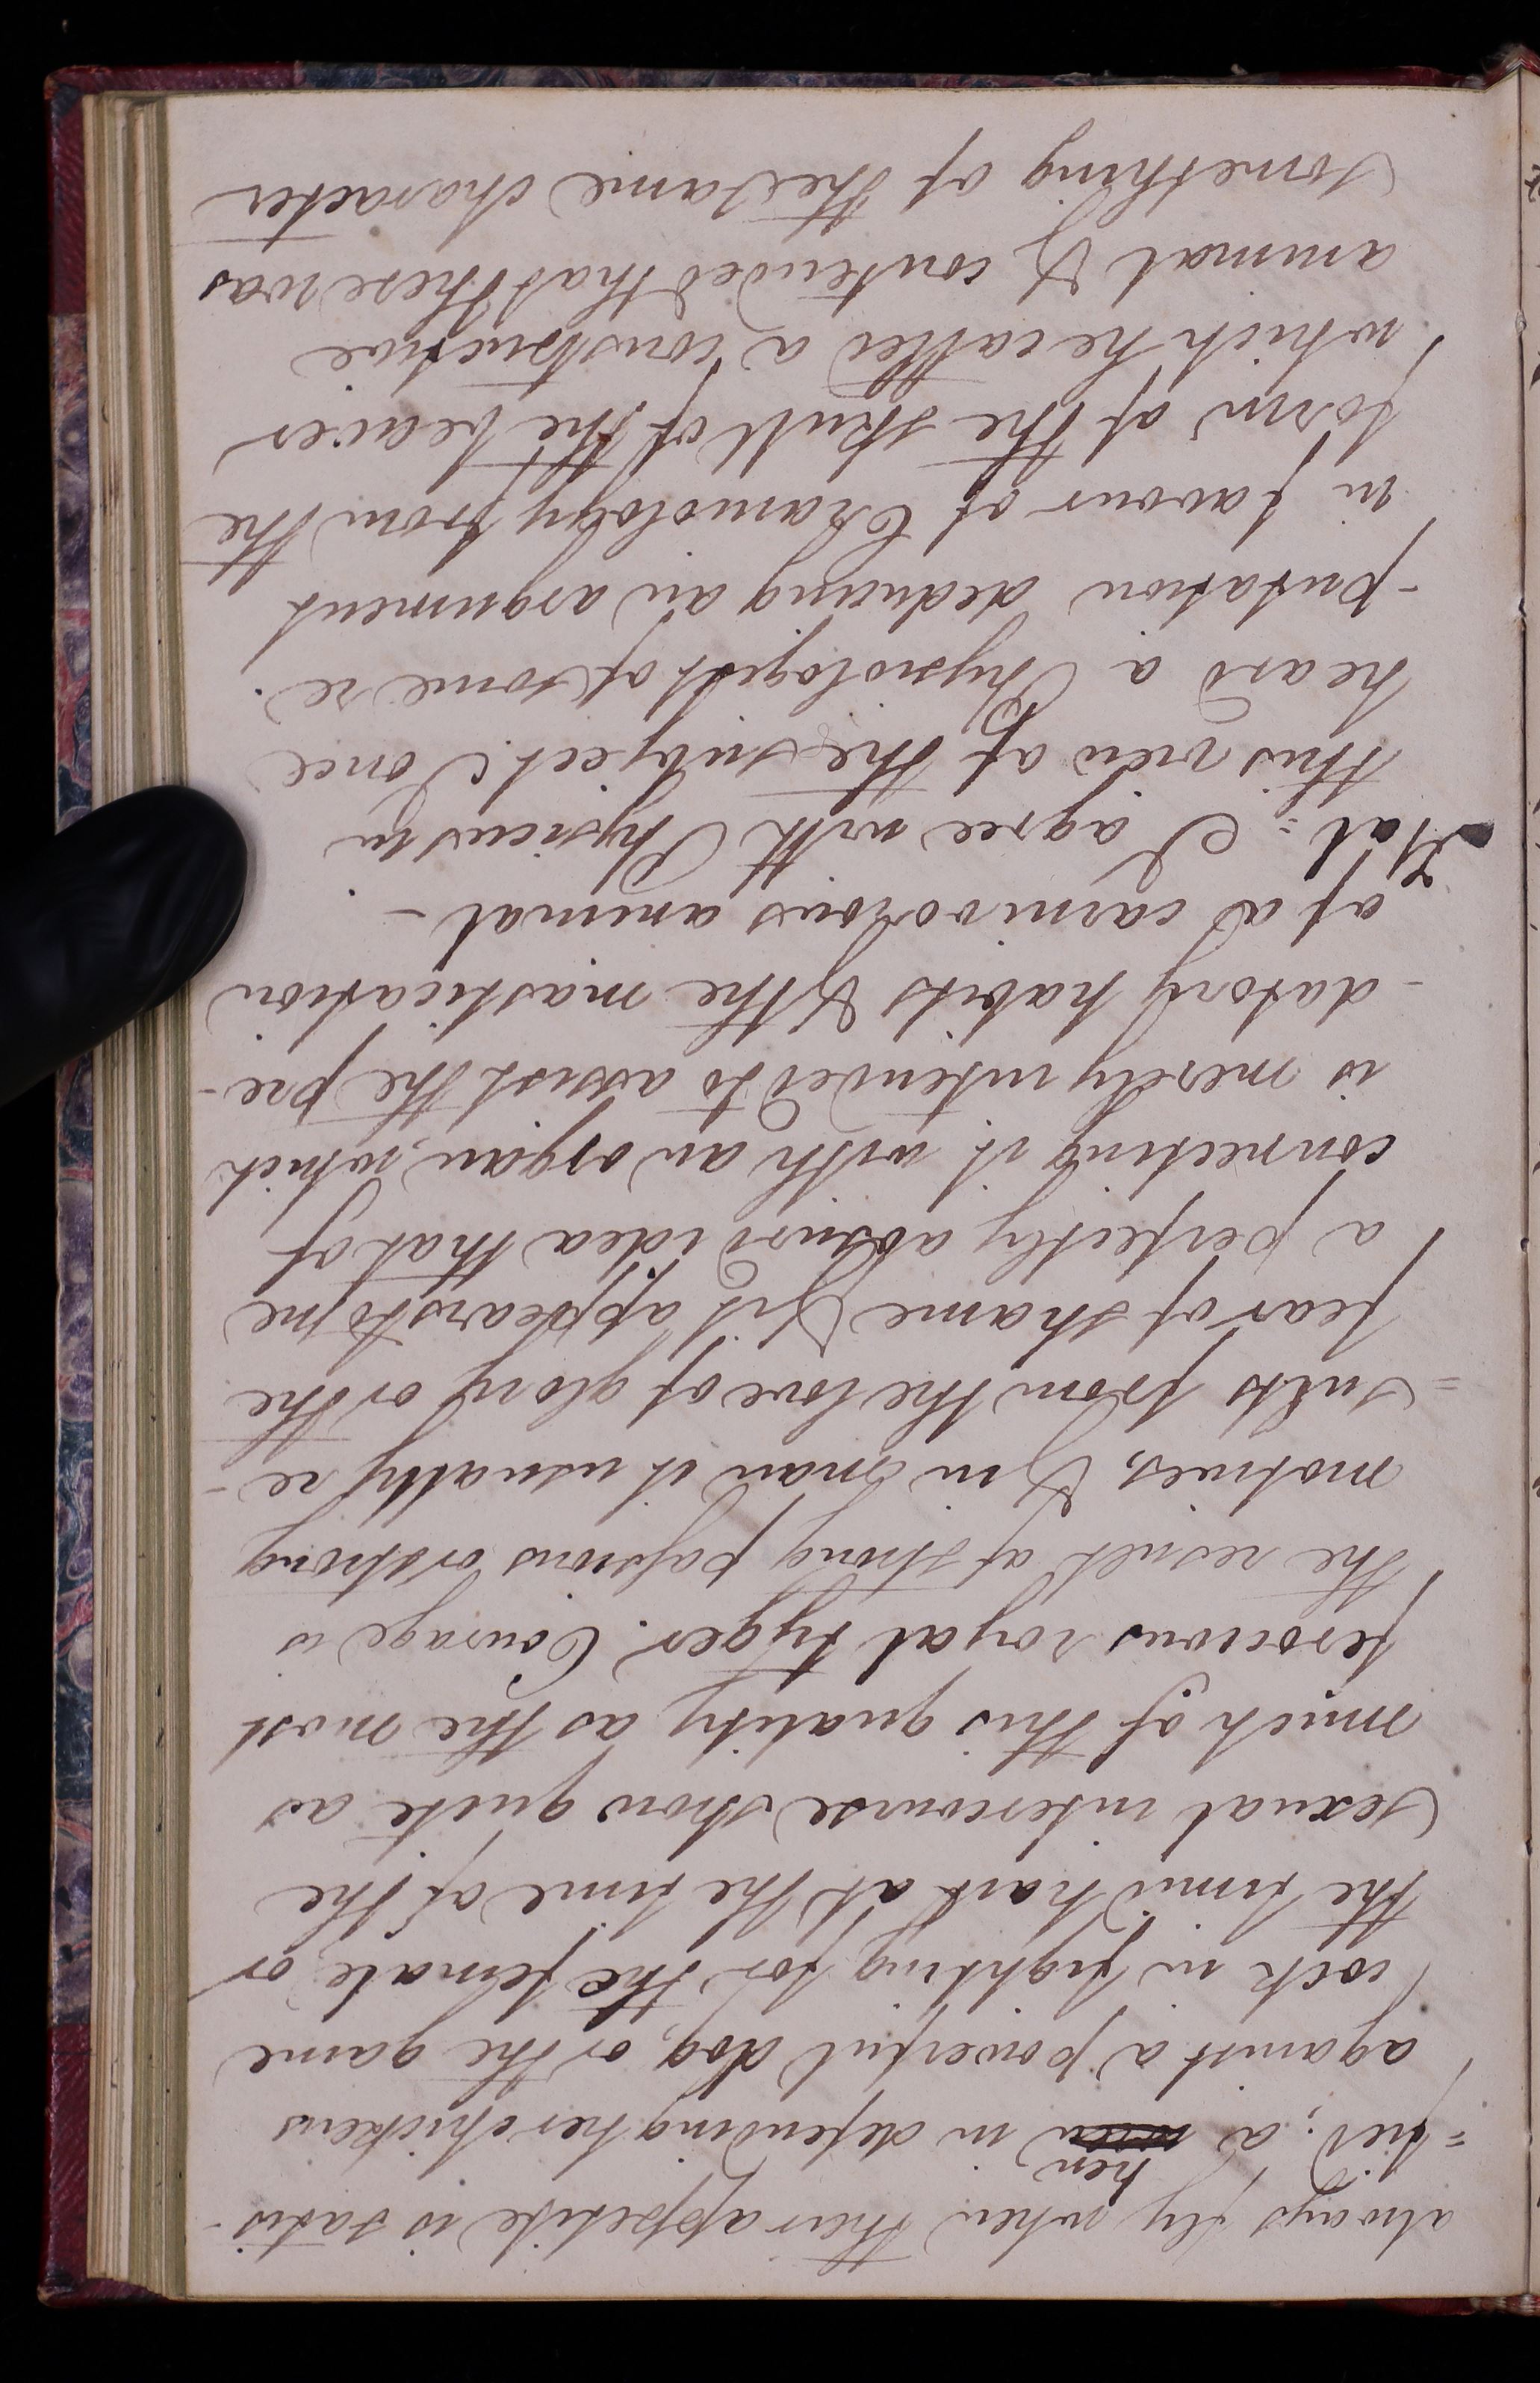 always fly when their appetite is satis-
=fied; a hen in defending her chickens
against a powerful dog, or the game
cock in fighting for the female, or
the timid hare at the time of the
sexual intercourse show quite as
much of this quality as the most
ferocious royal tyger. Courage is
the result of strong passions or strong
motives, & in man it usually re-
=sults from the love of glory or the
fear of shame & it appears to me
a perfectly absurd idea that of
connecting it with an organ, which
is merely intended to assist the pre-
-datory habits & the mastication
of a carnivorous animal -
Hal = I agree with Physicus in
this view of the subject. I once
heard a Physiologist of some re-
-putation deducing an argument
in favour of Craniology from the
form of the skull of the beaver
which he called a constructive
animal & contended that there was
something of the same character